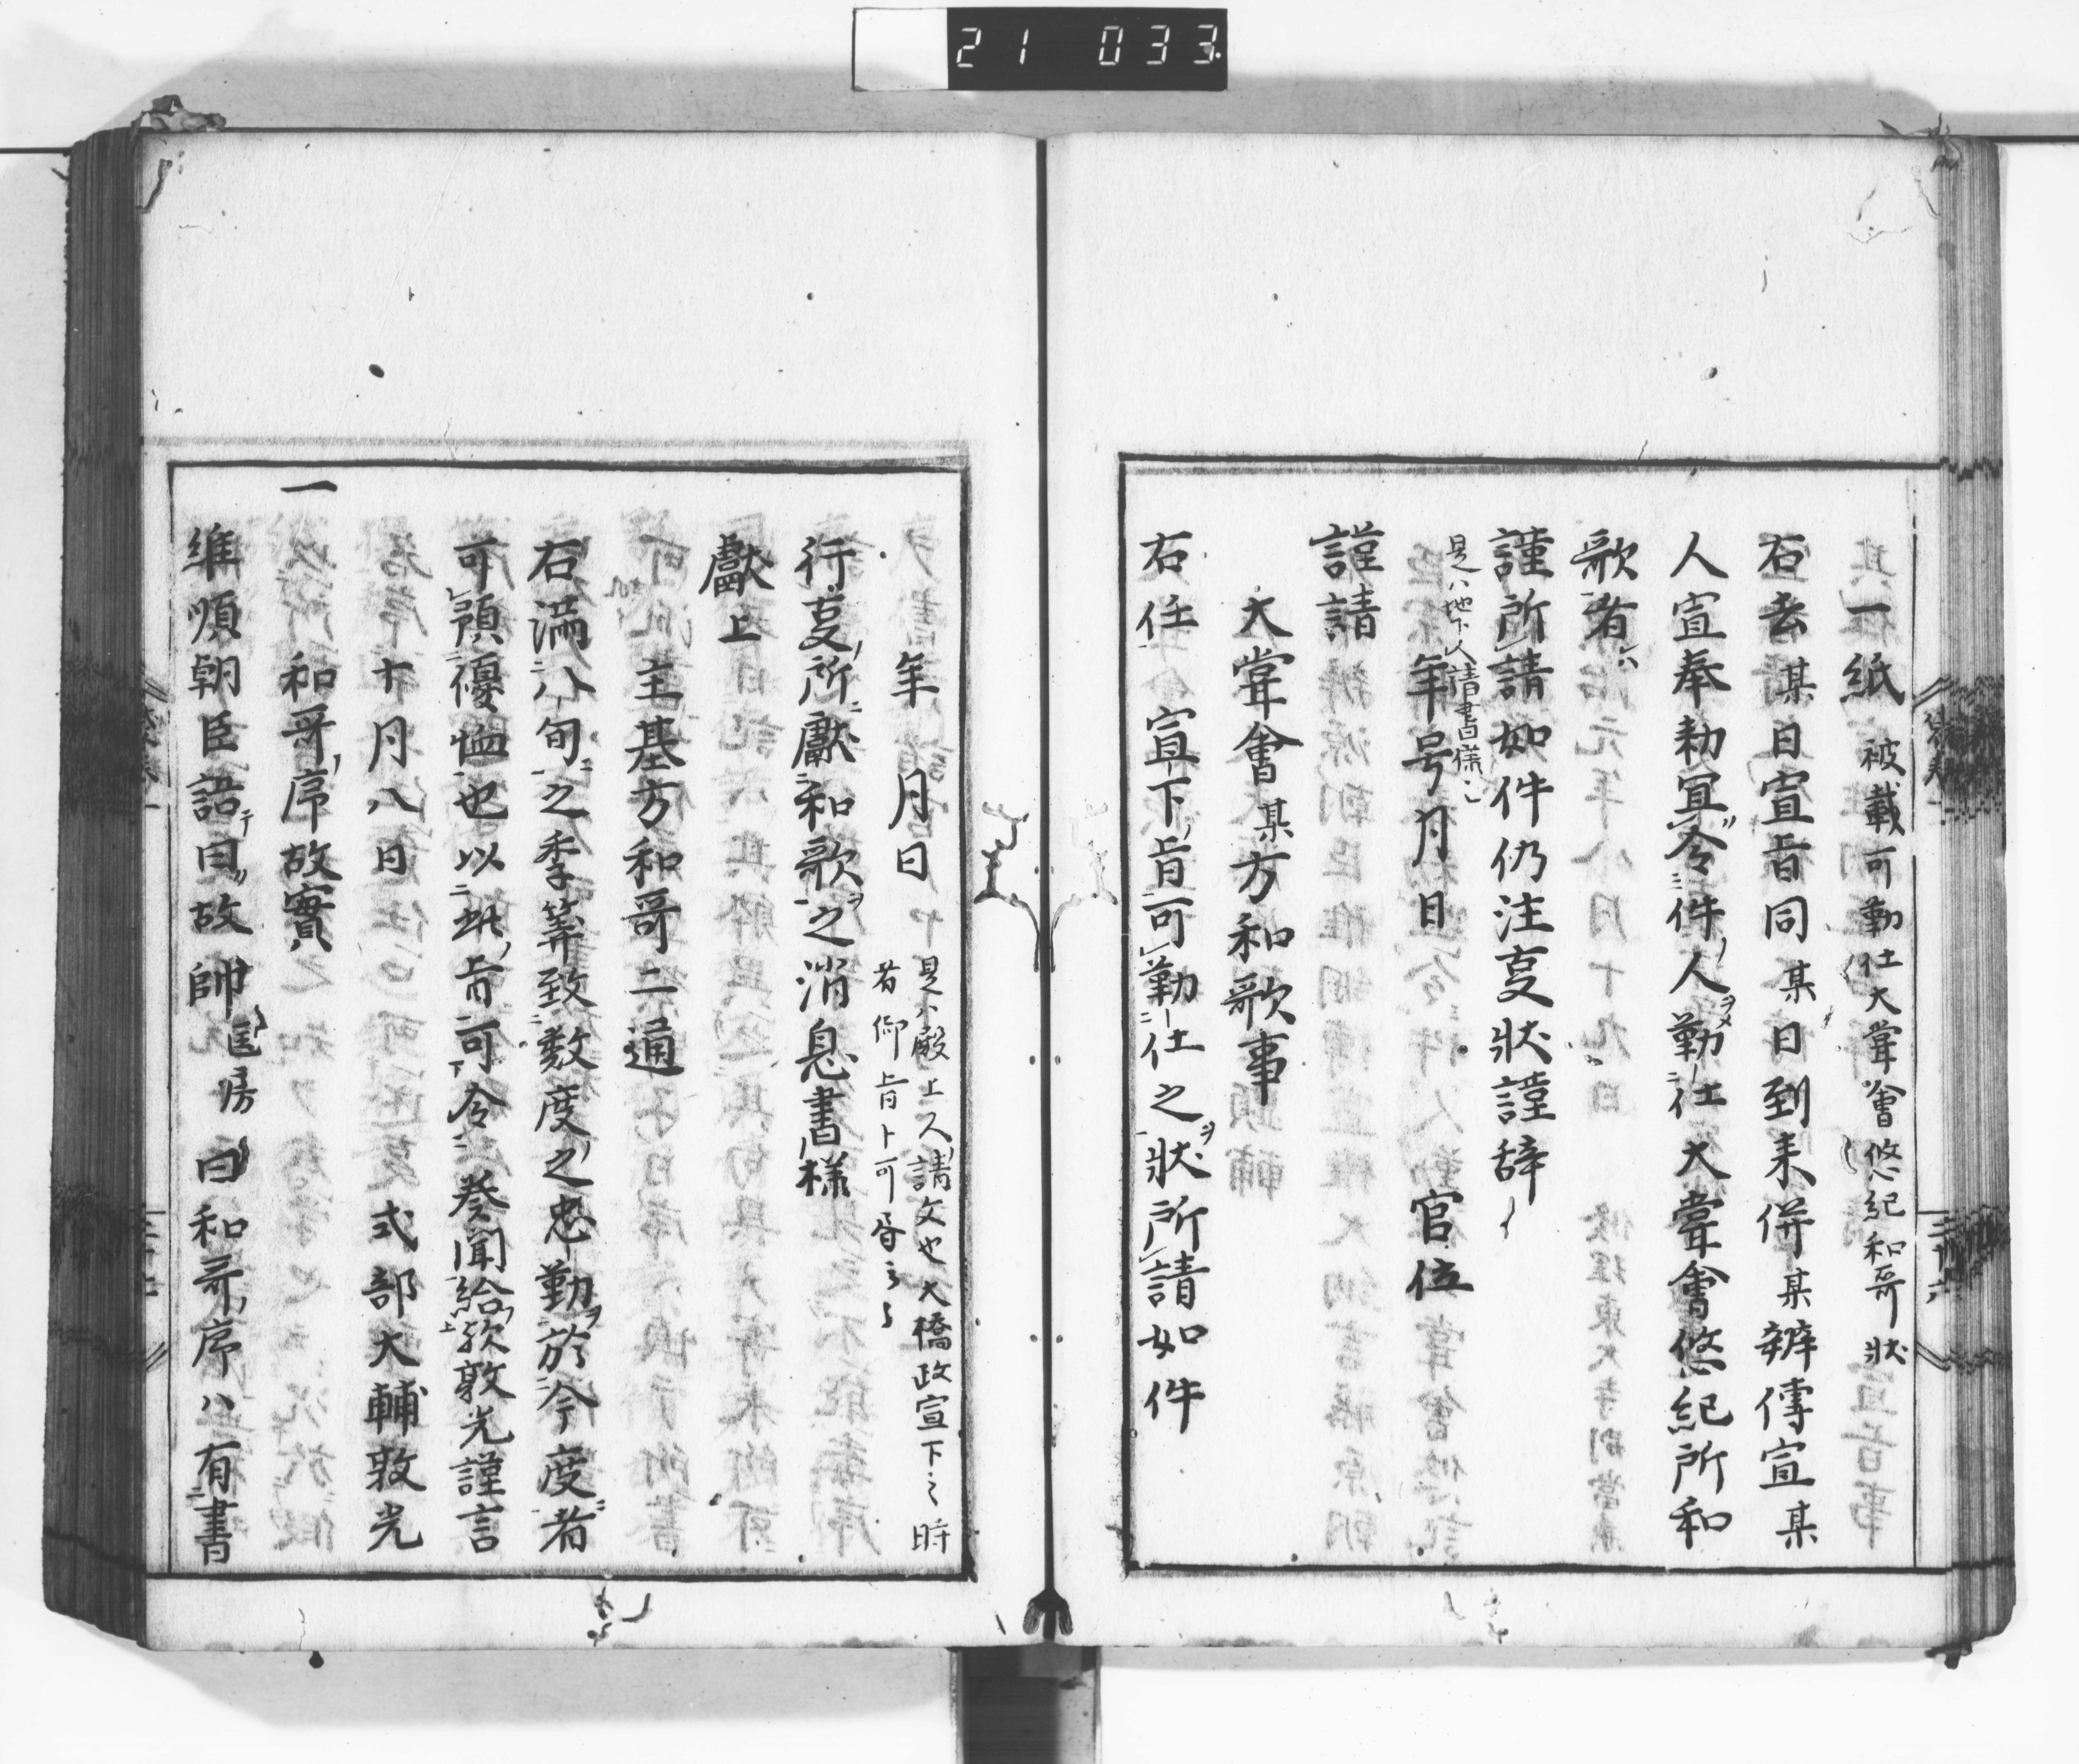 21 033
一紙 被載可勤仕大甞會悠紀和哥状
右去某日宣旨同某日到来併某辨傳宣某
人宣奉勅宣令件人勤仕大甞會悠紀所和
歌者
謹所請如件仍注叓状謹辞
是ハ地下人請書様
年号月日 官位
謹請
大甞會某方和歌事
右任 宣下旨可勤仕之状所請如件
年 月日
是ハ殿上人請文也大橋政宣下之時
者仰旨ト可
行叓所献和歌之消息書様
獻上
主基方和哥二通
右満八旬之季筭致数度之忠勤於今度者
可預優恤也以此旨可令奏聞給欤敦光謹言
十月八日 式部大輔敦光
一 和哥序故實
維順朝臣語曰故帥匡房曰和哥序ハ有書